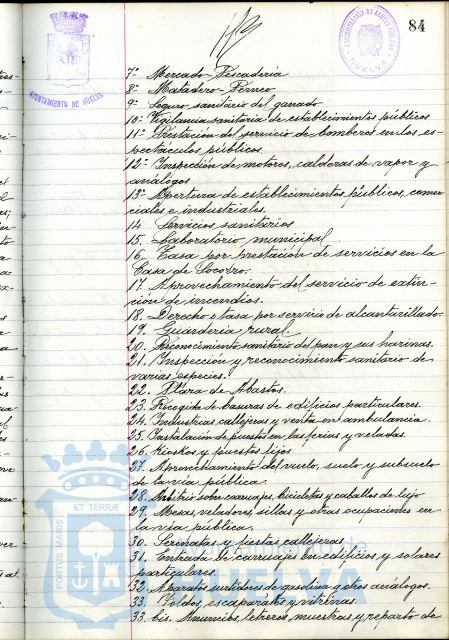 84
AYUNTAMIENTO DE HUELVA
HUELVA
7º Mercado-Pescadería
8º Matadero-Perneo
9º Seguro sanitario del ganado
10º Vigilancia sanitaria de establecimientos públicos
11º Prestación del servicio de bomberos en los es-
pectáculos públicos.
12º Inspección de motores, calderas de vapor y
análogos
13º Apertura de establecimientos públicos, comer-
ciales e industriales.
14 Servicios sanitarios
15. Laboratorio municipal
16. Tasa por prestación de servicios en la
Casa de Socorro.
17. Aprovechamiento del servicio de extin-
ción de incendios.
18. Derecho o tasa por servicio de alcantarillado.
19. Guardería rural
20. Reconocimiento sanitario del pan y sus harinas.
21. Inspección y reconocimiento sanitario de
varias especies.
22. Plaza de Abastos.
23. Recogida de basuras de edificios particulares.
24. Industrias callejeras y venta en ambulancia.
25. Instalación de puestos en las ferias y veladas.
26. Kioskos y puestos fijos
27. Aprovechamiento del vuelo, suelo y subsuelo
de la vía pública
28. Arbitrio sobre carruajes, bicicletas y caballos de lujo
29. Mesas, veladores, sillas y otras ocupaciones en
la vía pública.
30. Serenatas y fiestas callejeras
31. Entrada de carruajes en edificios y solares
particulares.
32 Aparatos surtidores de gasolina y otros análogos.
33. Toldos, escaparates y vitrinas.
33 bis. Anuncios, letreros, muestras, y reparto de
PORTUS MARIS ET TERRÆ
HUELVA